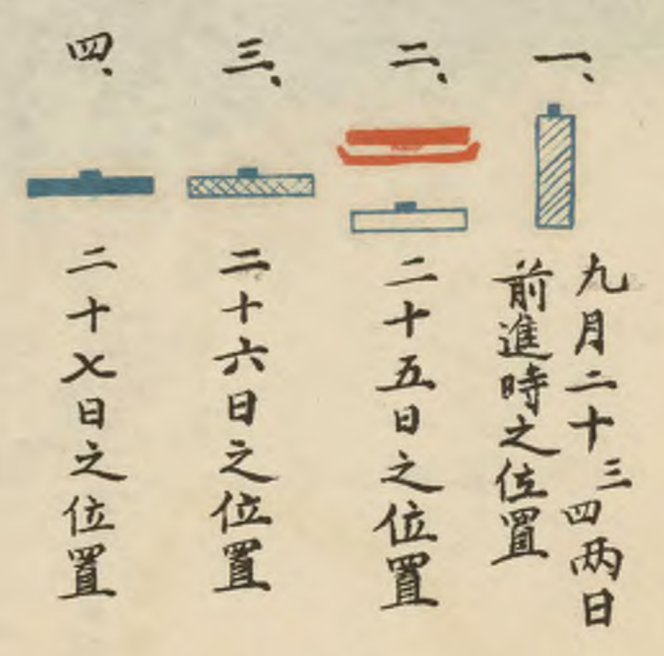 一、
九月二十三四两日
前進時之位置
二、
二十五日之位置
三、
二十六日之位置
四、
二十七日之位置